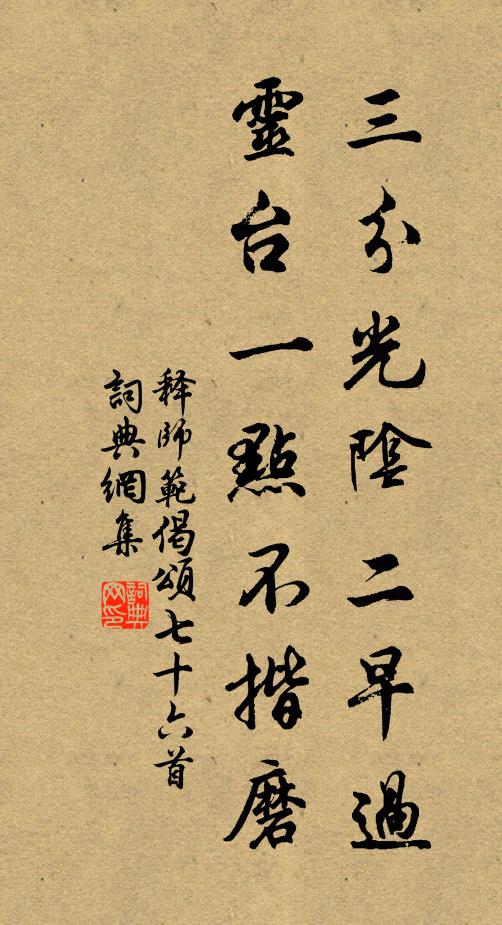 三分光陰二早過
靈台一點不揩磨
释師範偈頌七十六首
詞典網集
詞典网印